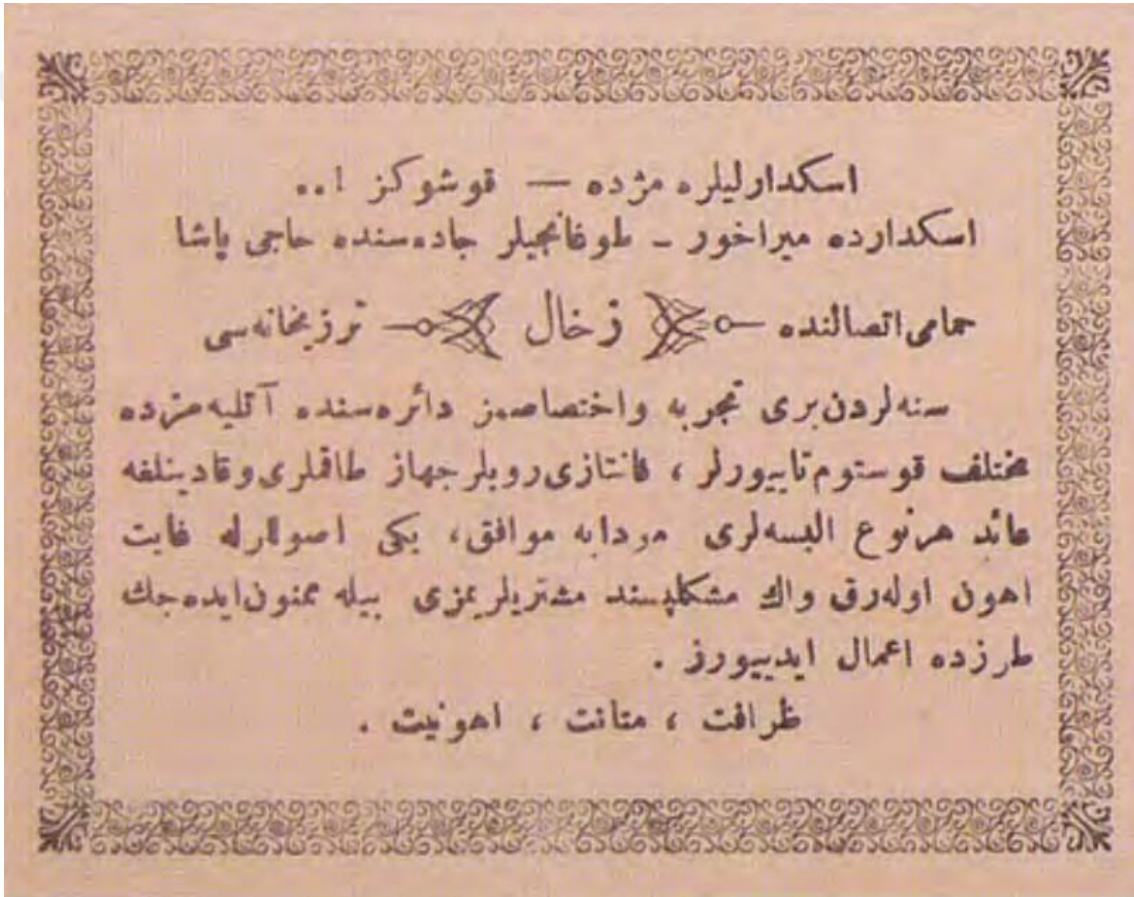 اسکدارلیلره مژده — قوشوکز !..
اسکدارده میراخور - طوغانجیلر جاده‌سنده حاجی پاشا
حمامی اتصالنده زخال ترزیخانه‌سی
سنه‌لردن بری تجربه واختصاصمز دائره‌سنده آتلیه‌مزده
مختلف قوستوم تابیورلر ، فانتازی روبلر جهاز طاقملری وقادینلغه
عائد هرنوع البسه‌لری مودایه موافق، یکی اصوللرله غایت
اهون اوله‌رق واک مشکلپسند مشتریلریمزی بیله ممنون ایده‌جک
طرزده اعمال ایدییورز .
ظرافت ، متانت ، اهونیت .